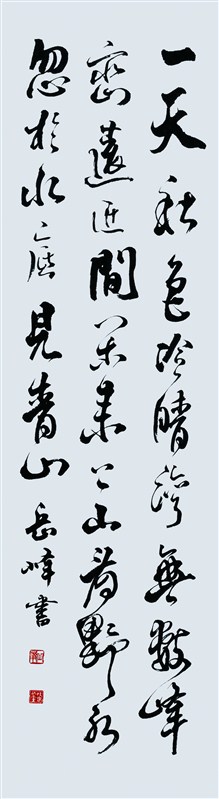 一天秋色冷晴灣無數峰
巒遠近間閒來上山看野水
忽於水底見青山 岳峰書